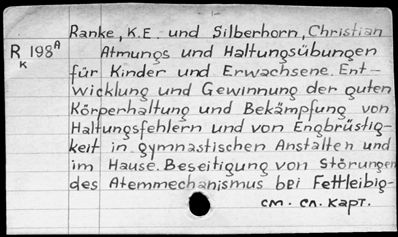 Ranke, K.E. und Silberhorn, Christian
R 198ᴬ
к
Atmungs und Haltungsübungen
für Kinder und Erwachsene. Ent-
wicklung und Gewinnung der guten
Körperhaltung und Bekämpfung von
Haltungsfehlern und von Engbrüstig-
keit in gymnastischen Anstalten und
im Hause. Beseitigung von Störungen
des Atemmechanismus bei Fettleibig-
см. сл. карт.